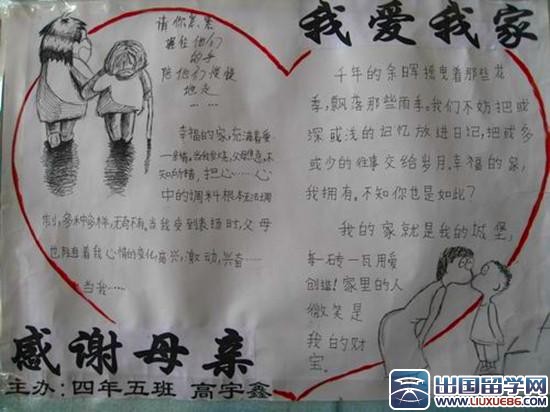 我爱我家
请你急急
握住他们
的手
陪他们慢慢
地走
……
幸福的家,充满着爱
一亲情。当我发烧,父母焦急,不
知所措,把心……心
中的调料根本无法调
制,多种多样,无奇不有。当我受到表扬时,父母
也随着我心情的变化,高兴,激动,兴奋……
当我……
千年的余晖摇曳着那些花
季,飘落那些雨季。我们不妨把或
深或浅的记忆放进日记,把或多
或少的往事交给岁月。幸福的家,
我拥有。不知你也是如此?
我的家就是我的城堡,
每一砖一瓦用爱
创造!家里的人
微笑是
我的财
宝。
感谢母亲
主办:四年五班 高宇鑫
出国留学网
www.liuxue86.com